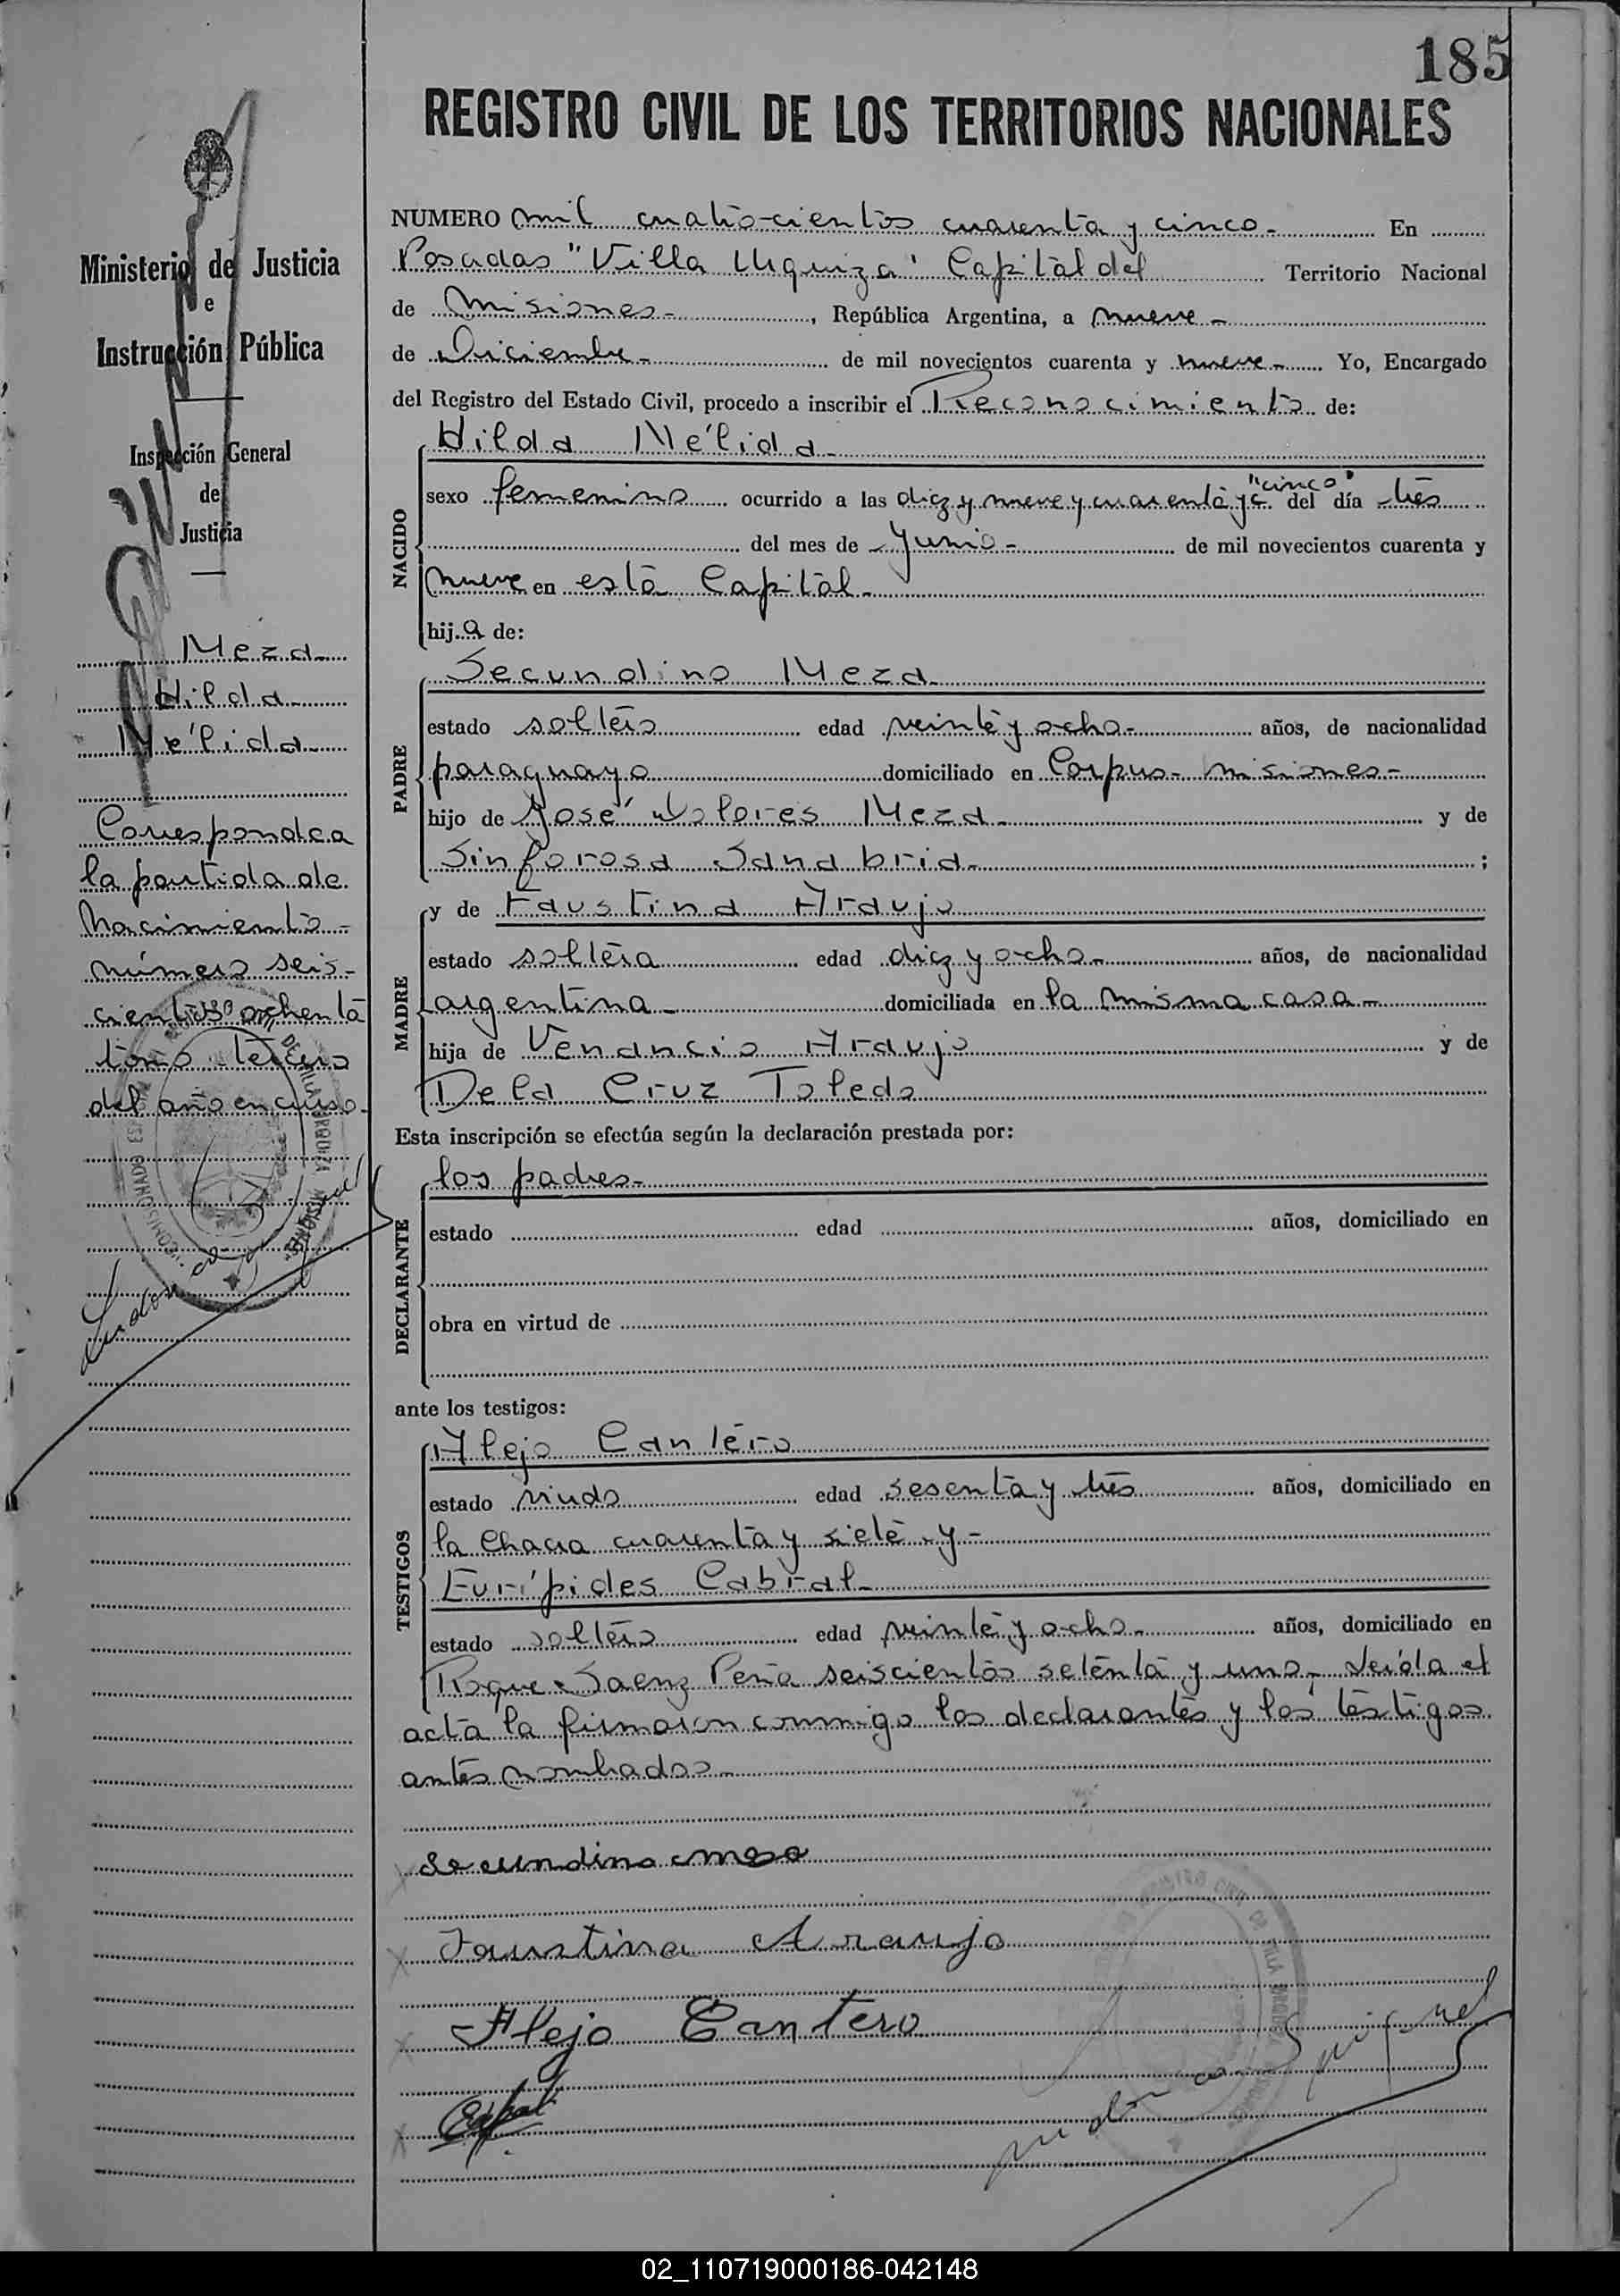 185
REGISTRO CIVIL DE LOS TERRITORIOS NACIONALES
NUMERO mil cuatrocientos cuarenta y cinco.- En
Posadas "Villa Urquiza" Capital del Territorio Nacional
de Misiones.- , República Argentina, a nueve -
de Diciembre.- de mil novecientos cuarenta y nueve.- Yo, Encargado
del Registro del Estado Civil, procedo a inscribir el Reconocimiento de:
NACIDO
Hilda Nélida.
sexo femenino ocurrido a las diez y nueve y cuarenta y c. "cinco" del día tres
del mes de Junio.- de mil novecientos cuarenta y
nueve en esta Capital.-
hija de:
PADRE
Secundino Meza.
estado soltero edad veinte y ocho.- años, de nacionalidad
paraguayo domiciliado en Corpus - Misiones.-
hijo de José Dolores Meza. y de
Sinforosa Sanabria.- ;
MADRE
y de Faustina Araujo
estado soltera edad diez y ocho.- años, de nacionalidad
argentina.- domiciliada en la misma casa.-
hija de Venancio Araujo y de
De la Cruz Toledo
Esta inscripción se efectúa según la declaración prestada por:
DECLARANTE
los padres.-
estado edad años, domiciliado en
obra en virtud de
ante los testigos:
TESTIGOS
Alejo Cantero
estado viudo edad sesenta y tres años, domiciliado en
la Chacra cuarenta y siete y -
Eurípides Cabral.-
estado soltero edad veinte y ocho.- años, domiciliado en
Roque Saenz Peña seiscientos setenta y uno.- Leída el
acta la firmaron conmigo los declarantes y los testigos
antes nombrados.-
Secundino Mesa
Faustina Araujo
Alejo Cantero
Ministerio de Justicia
e
Instrucción Pública
Inspección General
de
Justicia
Meza
Hilda
Nélida
Corresponde a
la partida de
Nacimiento -
número seis-
cientos ochenta
tomo tercero
del año en curso.
02_110719000186-042148